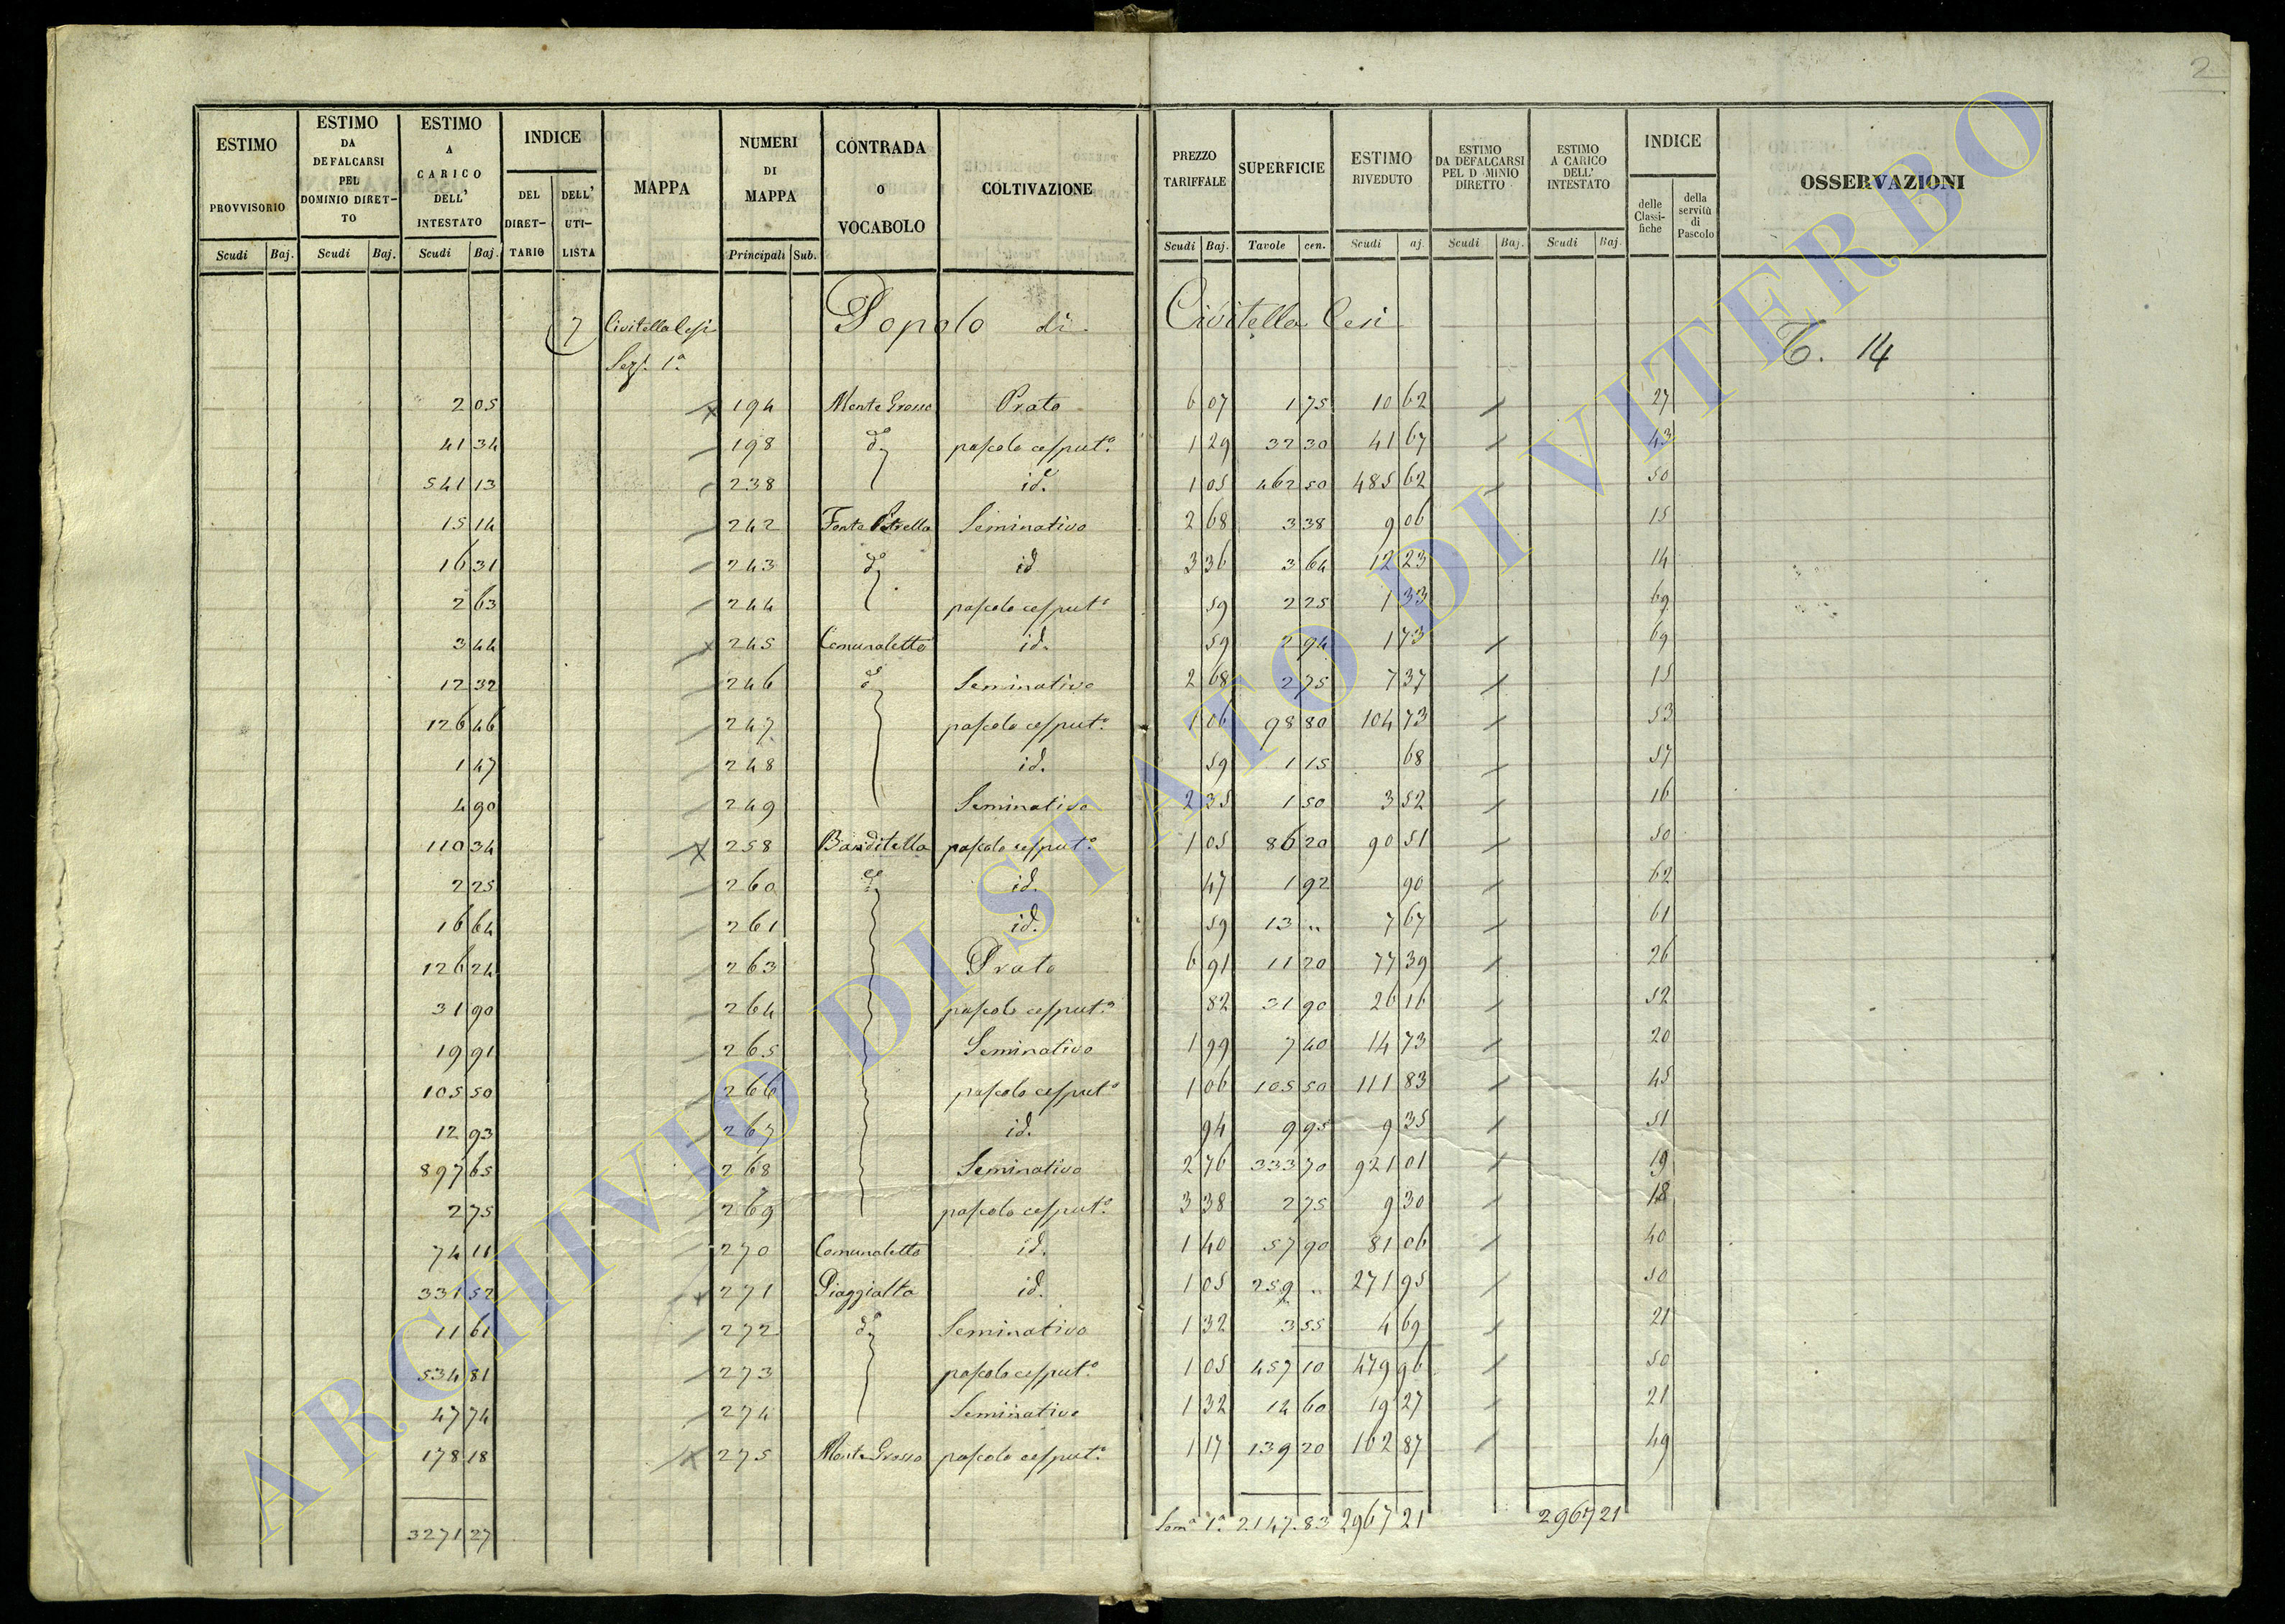 2
ESTIMO PROVVISORIO | ESTIMO DA DEFALCARSI PEL DOMINIO DIRETTO | ESTIMO A CARICO DELL' INTESTATO | INDICE DEL DIRETTARIO | DELL' UTILISTA | MAPPA | NUMERI DI MAPPA | CONTRADA O VOCABOLO | COLTIVAZIONE | PREZZO TARIFFALE | SUPERFICIE | ESTIMO RIVEDUTO | ESTIMO DA DEFALCARSI PEL D MINIO DIRETTO | ESTIMO A CARICO DELL' INTESTATO | INDICE delle Classifiche | della servitù di Pascolo | OSSERVAZIONI
Scudi Baj. | Scudi Baj. | Scudi Baj. | Principali Sub. | Scudi Baj. | Tavole cen. | Scudi aj. | Scudi Baj. | Scudi Baj.
7 Civitella Cesi Popolo di Civitella Cesi
Sez. 1ª T. 14
2 05 194 Monte Grosso Prato 6 07 1 75 10 62 27
41 34 198 dº pascolo cesputº 1 29 32 30 41 67 43
541 13 238 id. 1 05 462 50 485 62 50
15 14 242 Fonte Petrella Seminativo 2 68 3 38 9 06 15
16 31 243 dº id 3 36 3 64 12 23 14
2 63 244 pascolo cesputº 59 2 25 1 33 69
3 44 245 Comunaletto id. 59 2 94 1 73 69
12 32 246 dº Seminativo 2 68 2 75 7 37 15
126 46 247 pascolo cesputº 1 06 98 80 104 73 53
1 47 248 id. 59 1 15 68 57
4 90 249 Seminativo 2 35 1 50 3 52 16
110 34 258 Banditella pascolo cesputº 1 05 86 20 90 51 50
2 25 260 dº id. 47 1 92 90 62
16 64 261 id. 59 13 " 7 67 61
126 24 263 Prato 6 91 11 20 77 39 26
31 90 264 pascolo cesputº 82 31 90 26 16 52
19 91 265 Seminativo 1 99 7 40 14 73 20
105 50 266 pascolo cesputº 1 06 105 50 111 83 45
12 93 267 id. 94 9 95 9 35 51
897 65 268 Seminativo 2 76 333 70 921 01 19
2 75 269 pascolo cesputº 3 38 2 75 9 30 18
74 11 270 Comunaletto id. 1 40 57 90 81 06 40
331 52 271 Piaggialta id. 1 05 259 " 271 95 50
11 61 272 dº Seminativo 1 32 3 55 4 69 21
534 81 273 pascolo cesputº 1 05 457 10 479 96 50
47 74 274 Seminativo 1 32 14 60 19 27 21
178 18 275 Monte Grosso pascolo cesputº 1 17 139 20 162 87 49
3271 27 Somª 1ª 2147.83 2967 21 2967 21
ARCHIVIO DI STATO DI VITERBO